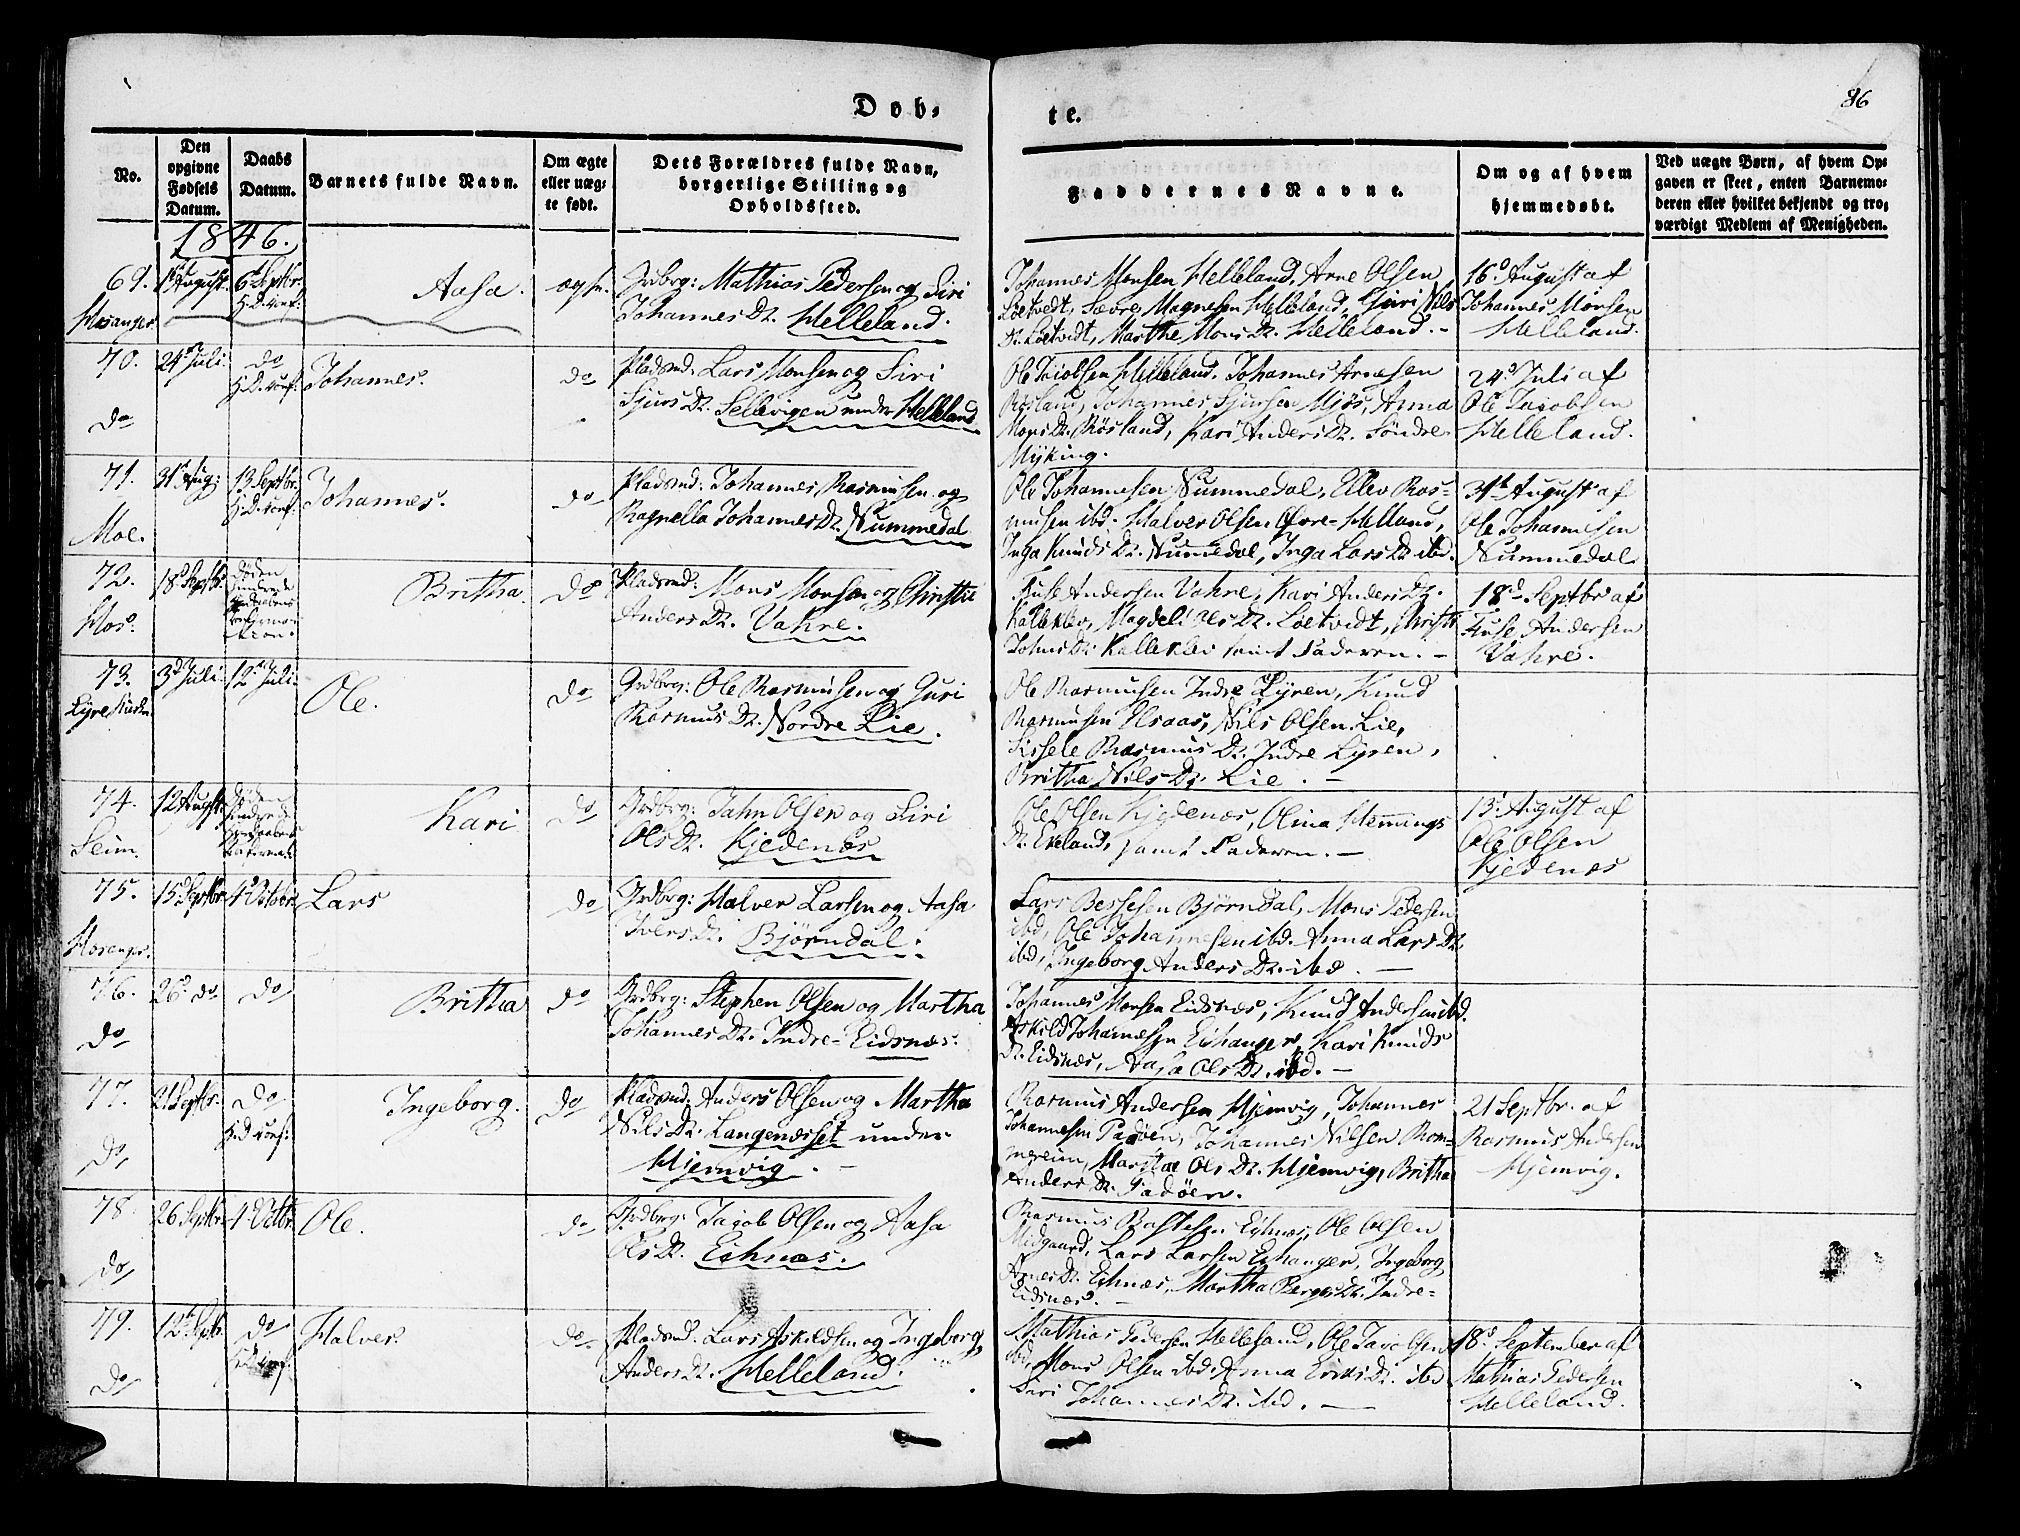 Døb-
te.
86
No.
Den opgivne Fødsels Datum.
Daabs Datum.
Barnets fulde Navn.
Om ægte eller uægte født.
Dets Forældres fulde Navn, borgerlige Stilling og Opholdssted.
Faddernes Navne.
Om og af hvem hjemmedøbt.
Ved uægte Børn, af hvem Opgaven er skeet, enten Barnemoderen eller hvilket bekjendt og troværdigt Medlem af Menigheden.
1846.
69.
Hosanger
August
6 Septbr.
H.D. conf.
Aasa.
Grdbrg: Mathias Pedersen og Siri
Johannes Dr. Helleland.
Johannes Monsen Helleland, Arne Olsen
Loetvedt, Sævre Magnesen Helleland, Guri Nils
Dr. Loetvedt, Marthe Mons Dr. Helleland. -
16d August af
Johannes Monsen
Helleland.
70.
do
24 Juli.
do
H.D. conf.
Johannes.
do
Pladsmd. Lars Monsen og Siri
Sjurs Dr. Sellevigen under Helleland
Ole Jacobsen Helleland, Johannes Arnesen
Røsland, Johannes Sjursen Mjøs, Anna
Mons Dr. Røsland, Kari Anders Dr. Søndre
Myking.
24d Juli af
Ole Jacobsen
Helleland.
71.
Moe.
31 Aug:
13 Septbr.
H.D. conf.
Johannes.
do
Pladsmd: Johannes Rasmusen og
Ragnella Johannes Dr. Nummedal
Ole Johannesen Nummedal, Ellev Ras-
musen ibd. Halver Olsen Øvre-Helland,
Inga Knuds Dr. Nummedal, Inga Lars Dr. ibd.
31te August af
Ole Johannesen
Nummedal
72.
Hos.
18d Septbr.
Døden
Britha.
do
Pladsmd: Mons Monsen og Christi
Anders Dr. Vahre.
Fuse Andersen Vahre, Kari Anders Dr.
Kalleklev, Magdeli Ols Dr. Loetvedt, Christi
Johns Dr. Kalleklev samt Faderen. -
18d Septbr af
Fuse Andersen
Vahre.
73.
3d Juli.
12 Juli.
Ole.
do
Grdbrg: Ole Rasmusen og Guri
Rasmus Dr. Nordre Lie.
Ole Rasmusen Indre Lyren, Knud
Rasmusen Nils Olsen Lie,
Sissele Rasmus Dr. Indre Lyren,
Britha Nils Dr. Lie. -
74.
Seim.
12 August
Døden
Kari
do
Grdbrg: John Olsen og Siri
Ols Dr. Kjedenæs
Ole Olsen Kjedenæs, Olina Hemmings
Dr. Eveland, samt Faderen. -
13. August af
Ole Olsen
Kjedenæs
75.
Hosanger.
15d Septbr
4 Octobr
Lars
do
Grdbrg: Halver Larsen og Aasa
Ivers Dr. Bjørndal.
Lars Bessesen Bjørndal, Mons Pedersen
ibd, Ole Johannesen ibd. Anna Lars Dr.
ibd, Ingeborg Anders Dr. ibd. -
76.
do
26d do
do
Britha
do
Grdbrg: Stephen Olsen og Martha
Johannes Dr. Indre-Eidsnæs.
Johannes Monsen Eidsnæs, Knud Andersen ibd.
Askild Johannesen Eihanger, Kari Knuds
Dr. Eidsnæs, Aasa Ols Dr. ibd. -
77.
do
21 Septbr.
do
H.D. conf.
Ingeborg.
do
Pladsmd. Anders Olsen og Martha
Nils Dr. Langenæsset under
Hjemvig. -
Rasmus Andersen Hjemvig, Johannes
Johannesen Padøen, Johannes Nilsen Rom-
mereim, Martha Ols Dr. Hjemvig, Britha
Anders Dr. Padøen.
21 Septbr. af
Rasmus Andersen
Hjemvig.
78.
do
26 Septbr.
4 Octbr.
Ole.
do
Grdbrg: Jacob Olsen og Aasa
Ols Dr. Eihnæs.
Rasmus Eihnæs, Ole Olsen
Midgaard, Lars Larsen Eihanger, Ingeborg
Arnes Dr. Eihnæs, Martha Dr. Indre-
Eidsnæs. -
79.
do
12te Septbr.
do
H.D. conf.
Halver.
do.
Pladsmd. Lars Askildsen og Ingeborg
Anders Dr. Helleland.
Mathias Pedersen Helleland, Ole
ibd, Mons Olsen ibd. Anna Eriks Dr. ibd
Siri Johannes Dr. ibd. -
18d September af
Mathias Pedersen
Helleland.